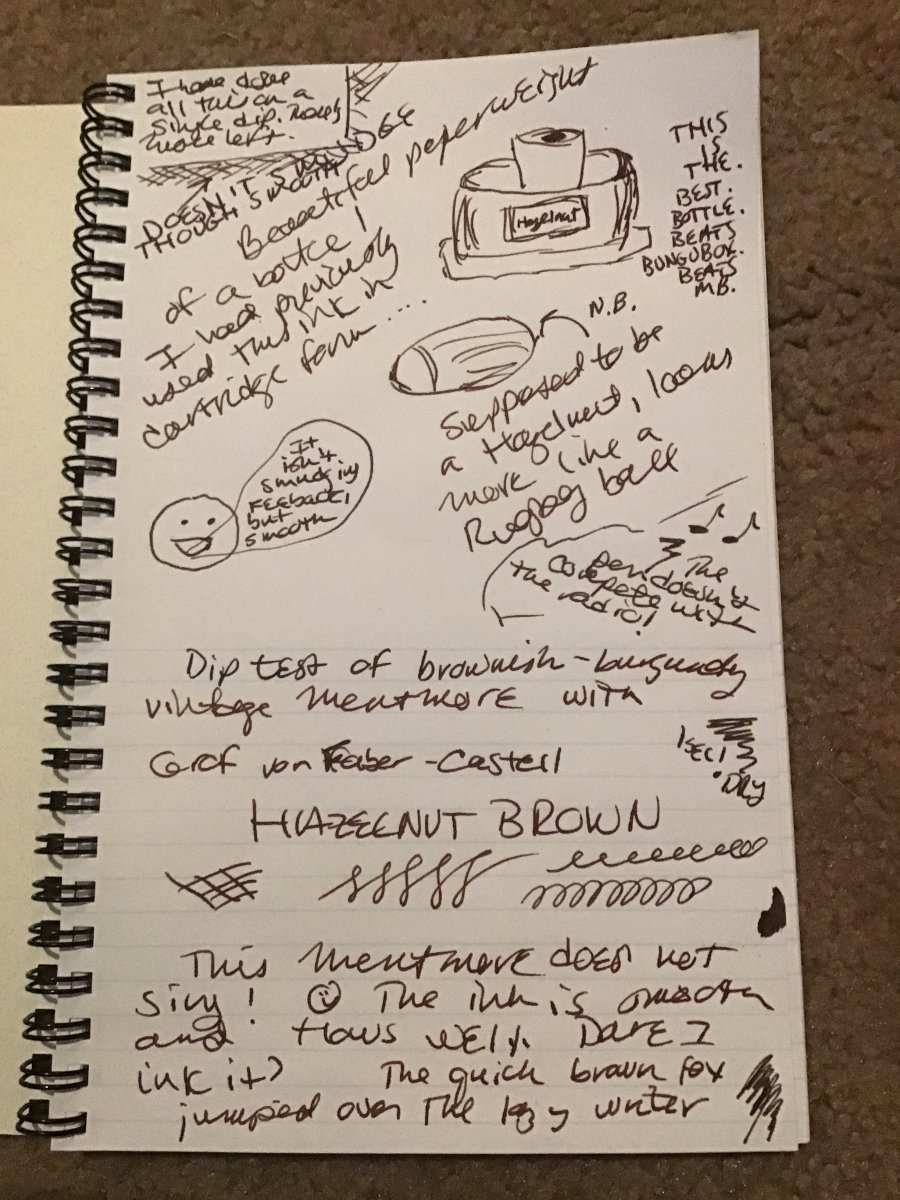 I have done
all this on a
single dip. There's
more left.
DOESN'T SMUDGE
THOUGH SMOOTH
Beautiful paperweight
of a bottle!
I had previously
used this ink in
cartridge form....
Hazelnut
THIS
IS
THE.
BEST.
BOTTLE.
BEATS
BUNGUBOX.
BEATS
MB.
N.B.
Supposed to be
a Hazelnut, looks
more like a
Rugby ball
It
isn't
smudging
FEEdback,
but
smooth
The
pen doesn't
compete with
the radio!
Dip test of brownish-burgundy
vintage Mentmore with
Graf von Faber-Castell
1 SEC!
DRY
HAZELNUT BROWN
This Mentmore does not
sing! The ink is smooth
and flows well. Dare I
ink it?   The quick brown fox
jumped over the lazy writer